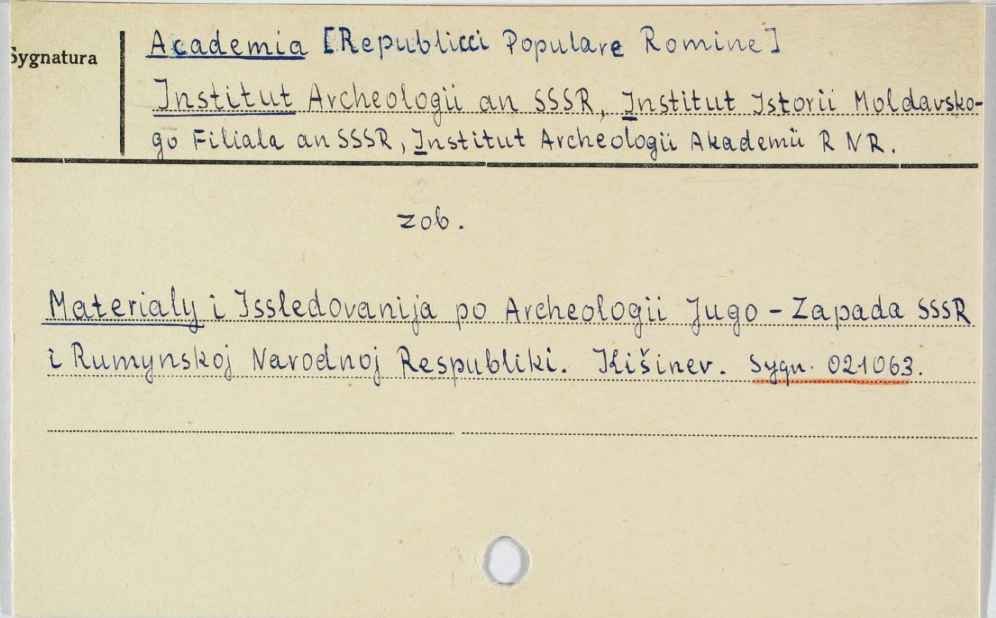 Sygnatura
Academia [Republicci Populare Romine]
Institut Archeologii an SSSR, Institut Istorii Moldavsko-
go Filiala an SSSR, Institut Archeologii Akademii R NR.
zob.
Materialy i Issledovanija po Archeologii Jugo - Zapada SSSR
i Rumynskoj Narodnoj Respubliki. Kišinev. Sygn. 021063.